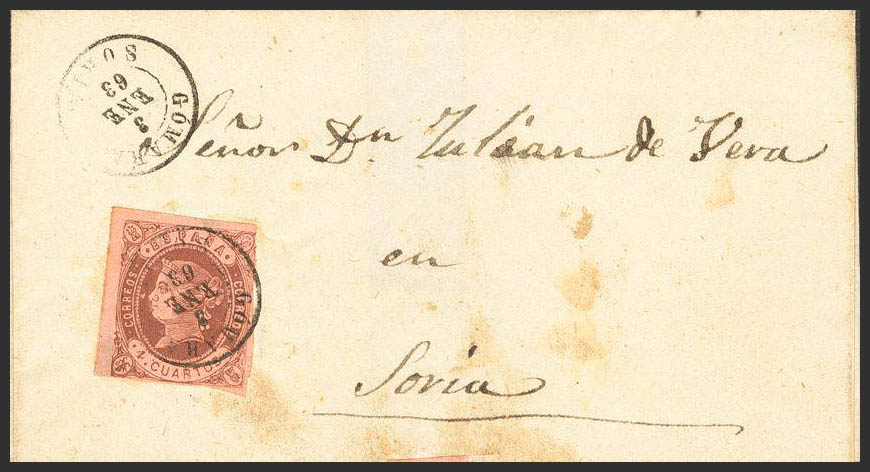 GÓMARA
3
ENE
63
SORIA
Señor Dn Julian de Vera
en
Soria
ESPAÑA
CORREOS
CORREOS
4 CUARTOS
GÓMARA
3
ENE
63